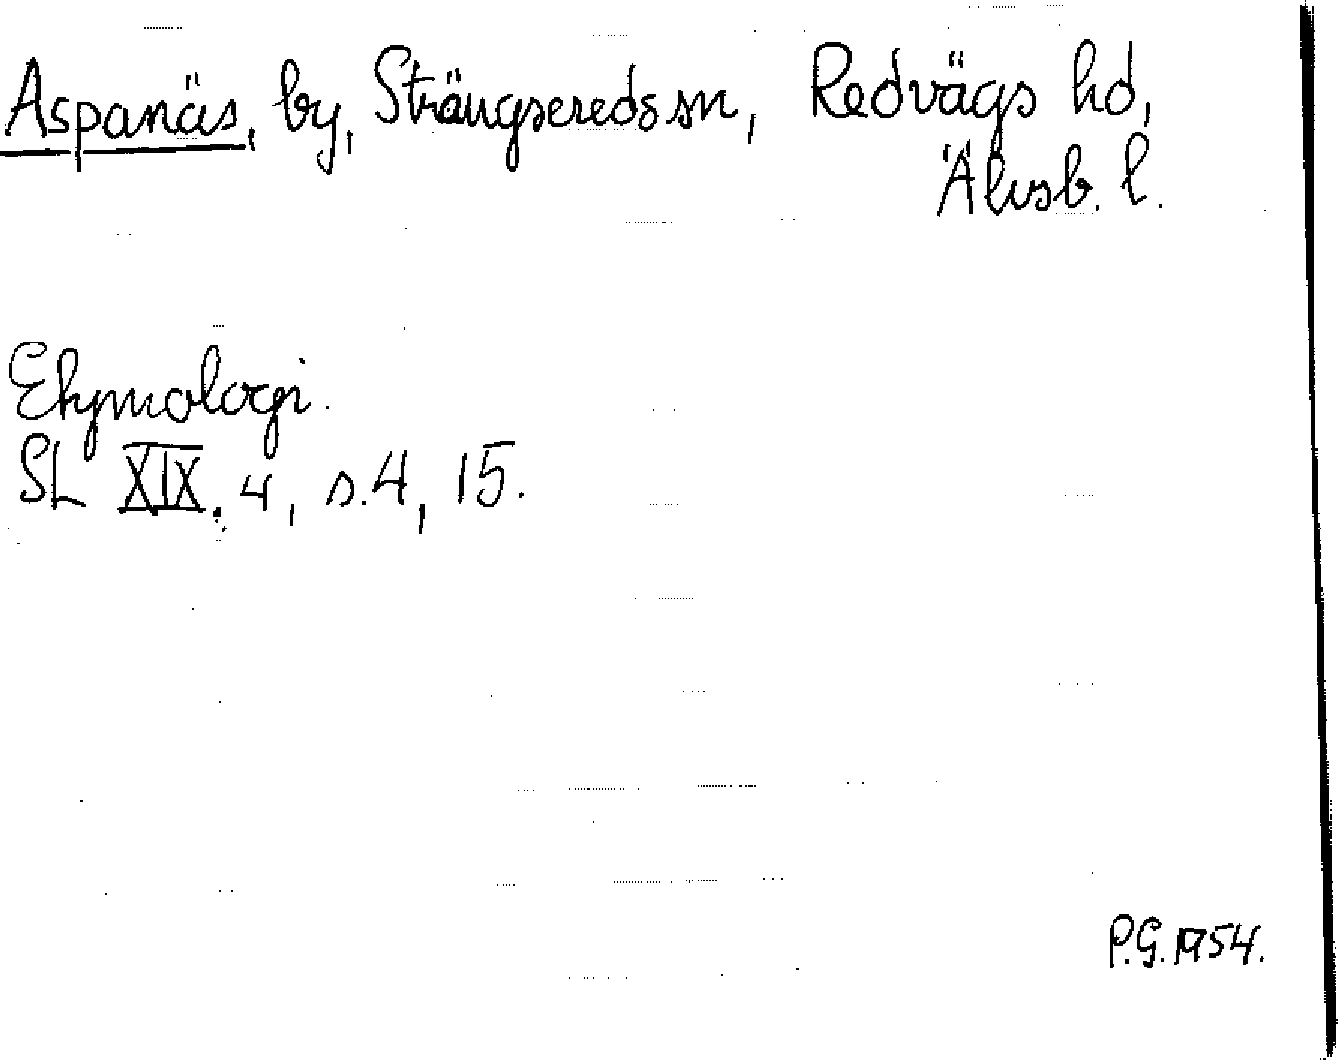 Aspanäs, by, Strängsereds sn, Redvägs hd,
Älvsb. l.
Etymologi.
SL XIX. 4, s. 4, 15.
P.G. 1954.